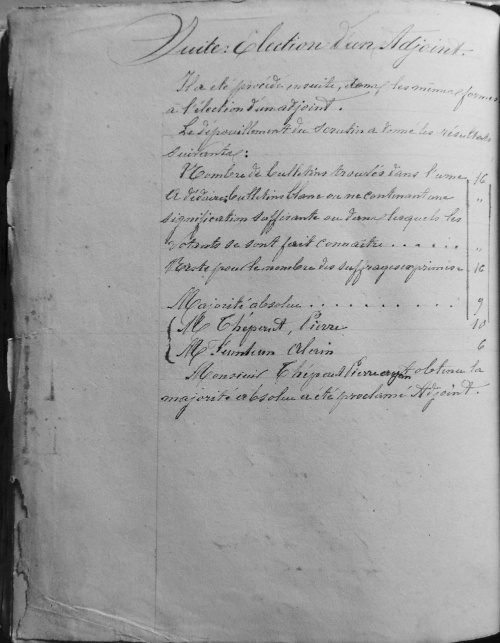 Suite: Election d'un Adjoint.
Il a été procédé ensuite, dans les mêmes formes
à l'élection d'un adjoint.
Le dépouillement du scrutin a donné les résultats
suivants:
Nombre de bulletins trouvés dans l'urne 16
A déduire: bulletins blancs ou ne contenant une "
signification suffisante ou dans lesquels les
votants se sont fait connaître . . . . . "
Reste pour le nombre des suffrages exprimés 16
Majorité absolue . . . . . . . . . . 9
M Thépaut, Pierre 10
M 6
Monsieur Thépaut Pierre ayant obtenu la
majorité absolue a été proclamé Adjoint.